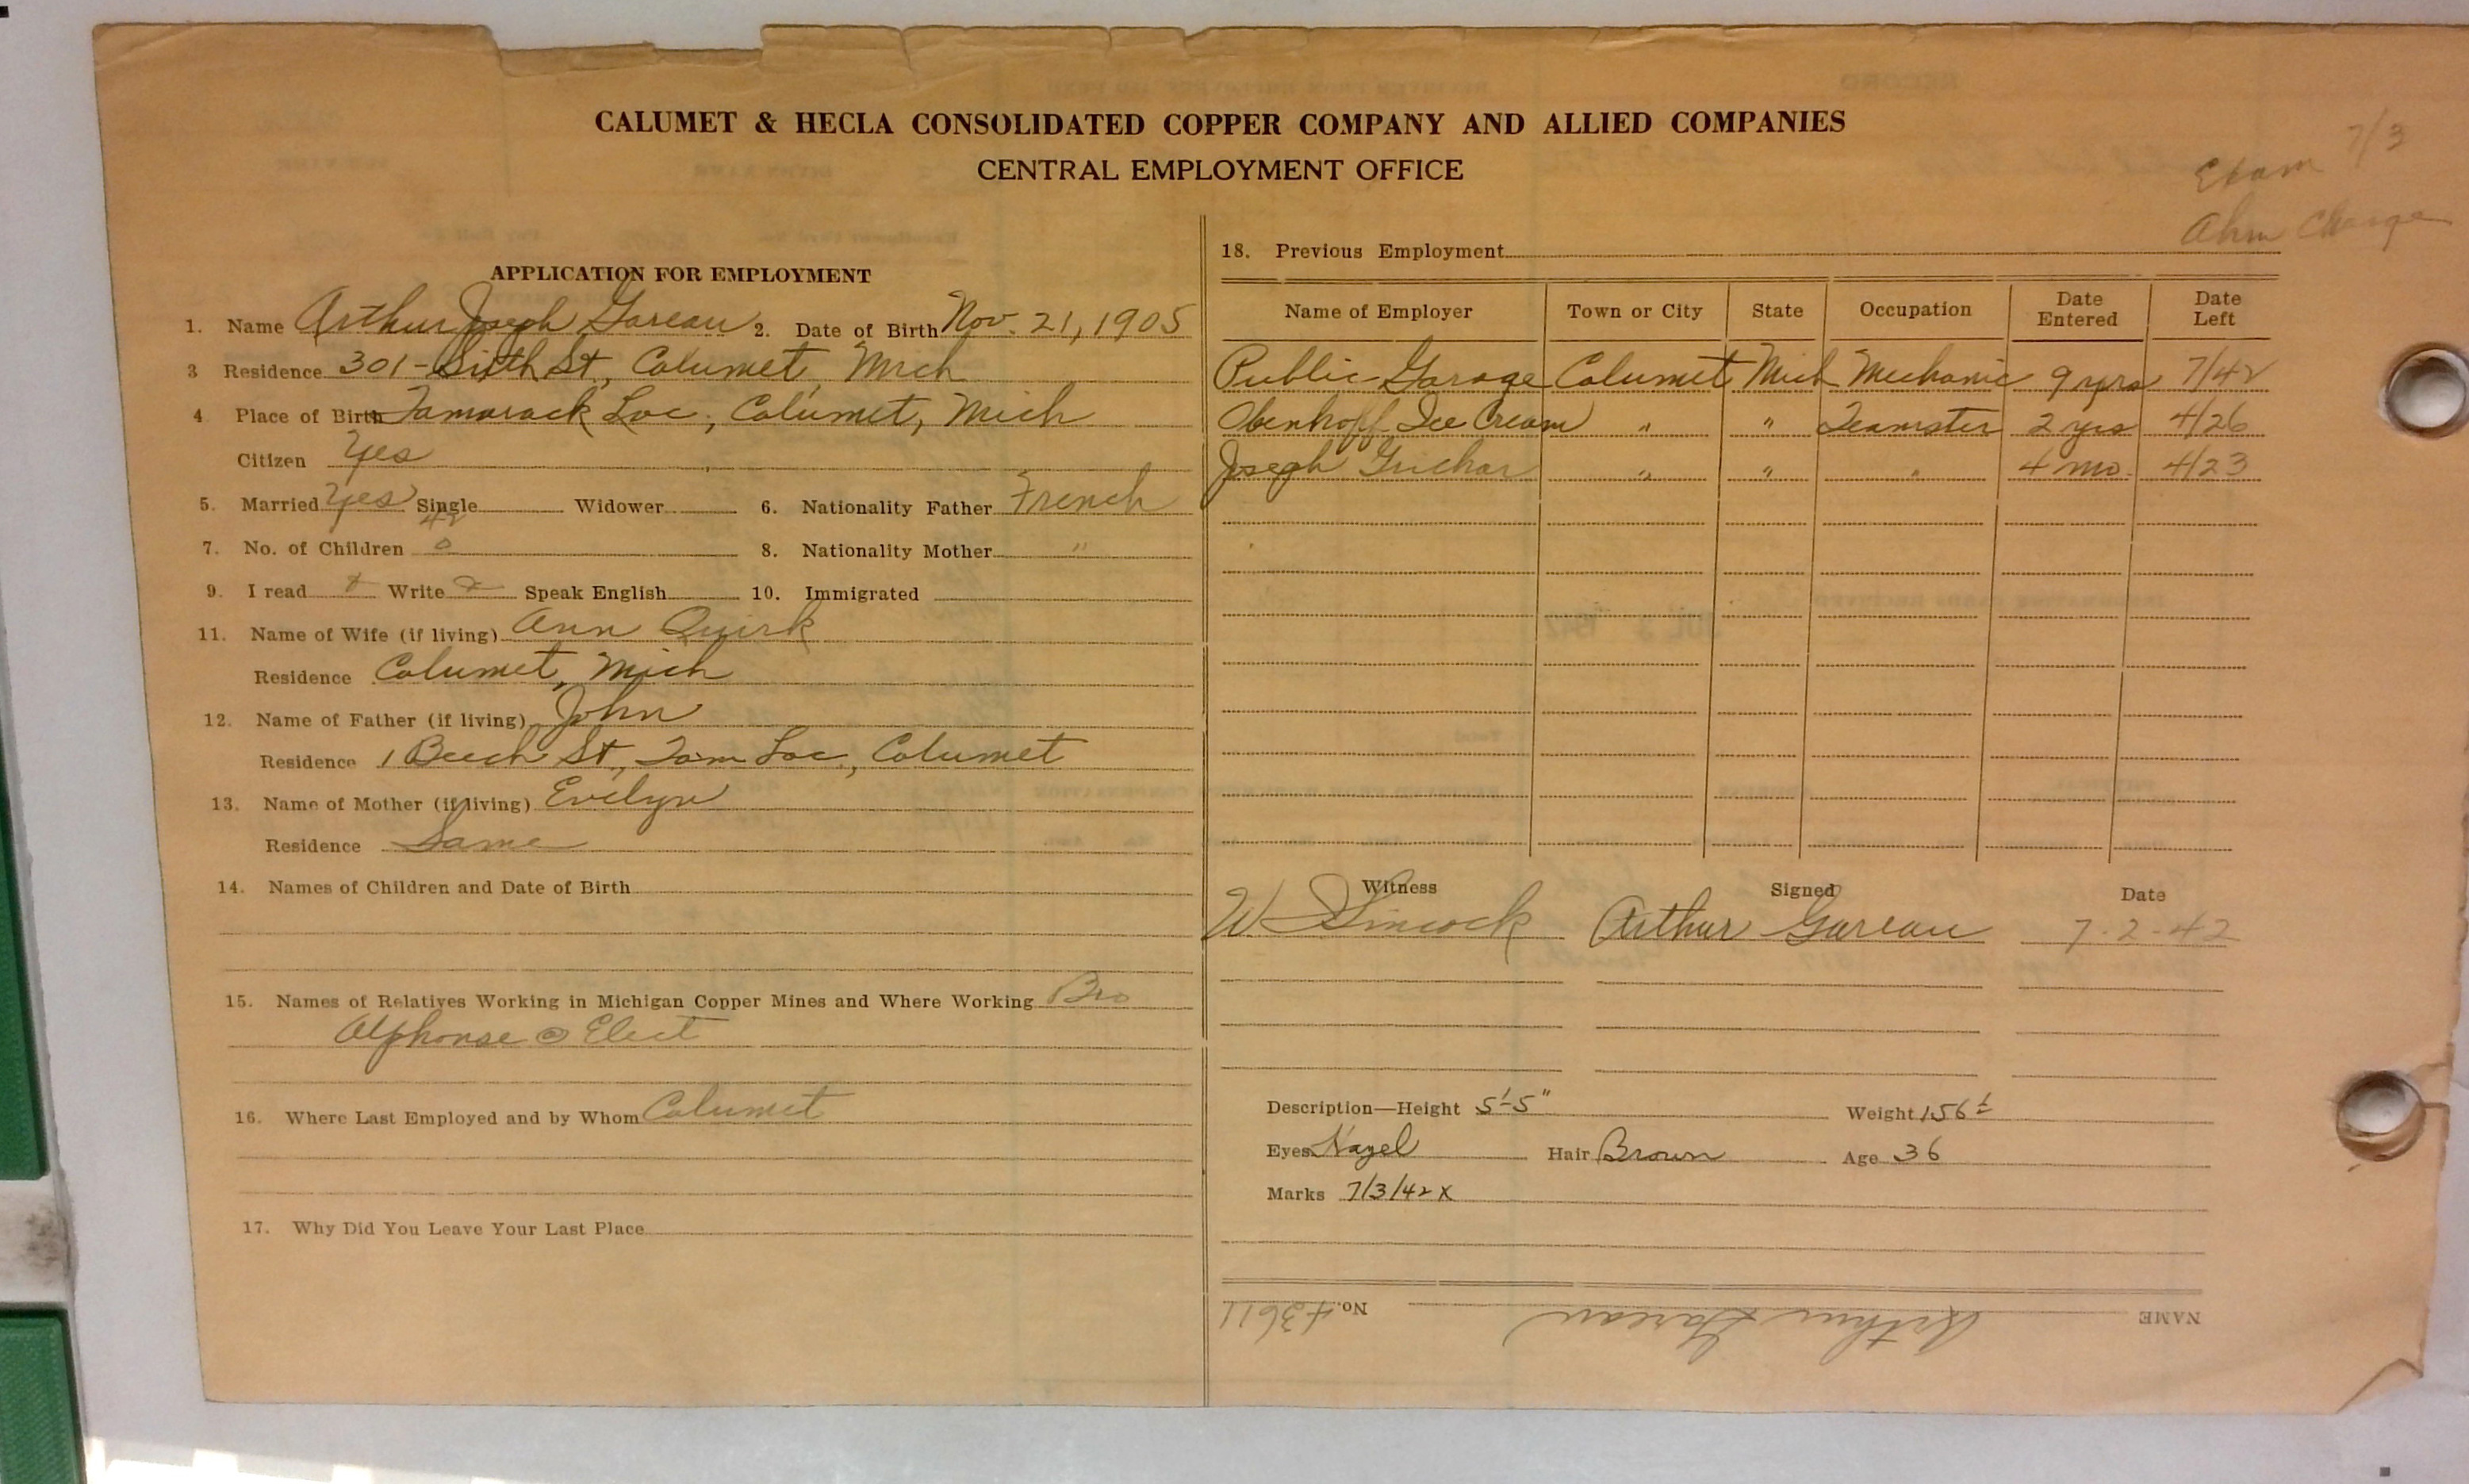 CALUMET & HECLA CONSOLIDATED COPPER COMPANY AND ALLIED COMPANIES
CENTRAL EMPLOYMENT OFFICE
Exam 7/3
APPLICATION FOR EMPLOYMENT
1. Name Arthur Joseph Gareau 2. Date of Birth Nov. 21, 1905
3 Residence 301 - Sixth St, Calumet, Mich
4 Place of Birth Tamarack Loc, Calumet, Mich
Citizen Yes
5. Married Yes Single Widower 6. Nationality Father French
42
7. No. of Children 0 8. Nationality Mother "
9. I read Write Speak English 10. Immigrated
11. Name of Wife (if living) Ann Quirk
Residence Calumet, Mich
12. Name of Father (if living) John
Residence 1 Beech St, Tam Loc, Calumet
13. Name of Mother (if living) Evelyn
Residence Same
14. Names of Children and Date of Birth
15. Names of Relatives Working in Michigan Copper Mines and Where Working Bro
Alphonse @ Elect
16. Where Last Employed and by Whom Calumet
17. Why Did You Leave Your Last Place
18. Previous Employment
Name of Employer Town or City State Occupation Date Entered Date Left
Public Garage Calumet Mich Mechanic 9 yrs 7/42
Obenhoff Ice Cream " " Teamster 2 yrs 4/26
Joseph Grichar " " " 4 mo. 4/23
Witness Signed Date
W Simcock Arthur Gareau 7-2-42
Description—Height 5'-5" Weight 156
Eyes Hazel Hair Brown Age 36
Marks 7/3/42 X
NAME Arthur Gareau No. 43611